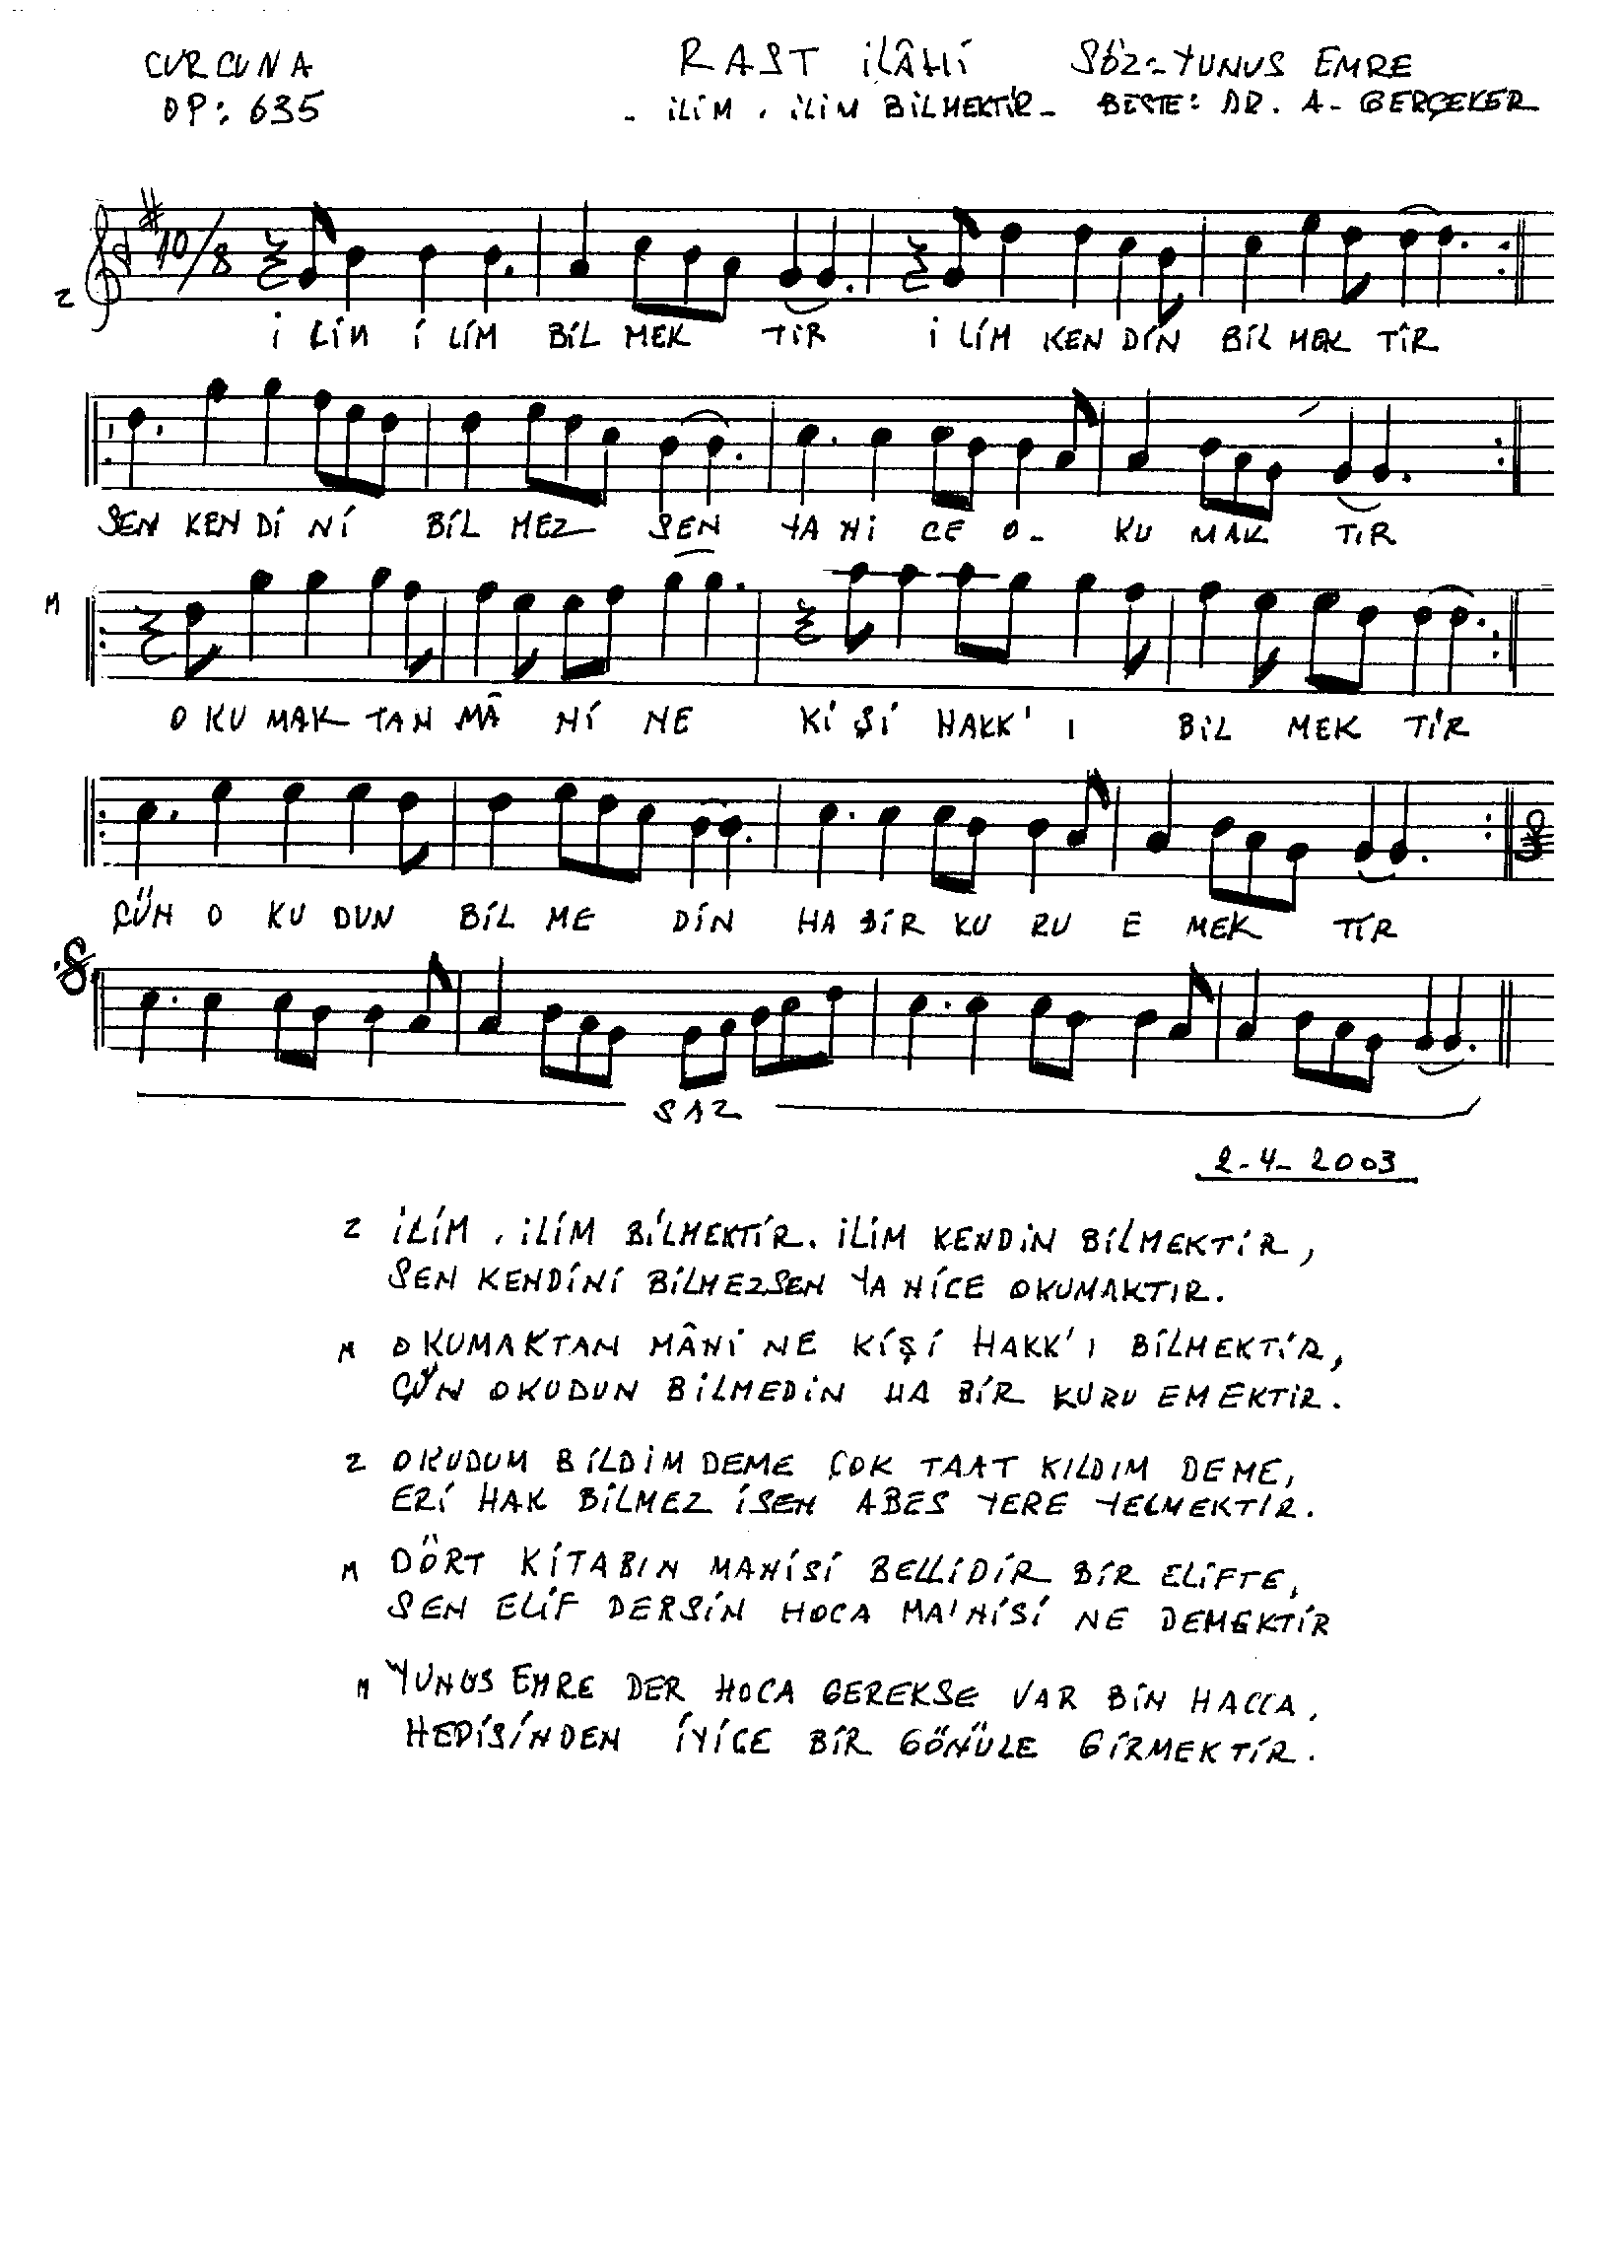 CURCUNA RAST İLÂHİ SÖZ:-YUNUS EMRE
OP: 635 - İLİM . İLİM BİLMEKTİR- BESTE: DR. A- GERÇEKER
10/8
Z
İ LİM İ LİM BİL MEK TİR İ LİM KEN DİN BİL MEK TİR
SEN KEN Dİ Nİ BİL MEZ SEN YA Nİ CE O- KU MAK TIR
M
O KU MAK TAN MÂ Nİ NE Kİ Şİ HAKK' I BİL MEK TİR
ÇÜN O KU DUN BİL ME DİN HA BİR KU RU E MEK TİR
SAZ
2-4-2003
Z İLİM . İLİM BİLMEKTİR. İLİM KENDİN BİLMEKTİR,
SEN KENDİNİ BİLMEZSEN YA NİCE OKUMAKTIR.
M OKUMAKTAN MÂNİ NE KİŞİ HAKK'I BİLMEKTİR,
ÇÜN OKUDUN BİLMEDİN HA BİR KURU EMEKTİR.
Z OKUDUM BİLDİM DEME ÇOK TAAT KILDIM DEME,
ERİ HAK BİLMEZ İSEN ABES YERE YELMEKTİR.
M DÖRT KİTABIN MANİSİ BELLİDİR BİR ELİFTE,
SEN ELİF DERSİN HOCA MA'NİSİ NE DEMEKTİR
M YUNUS EMRE DER HOCA GEREKSE VAR BİN HACCA,
HEPİSİNDEN İYİCE BİR GÖNÜLE GİRMEKTİR.